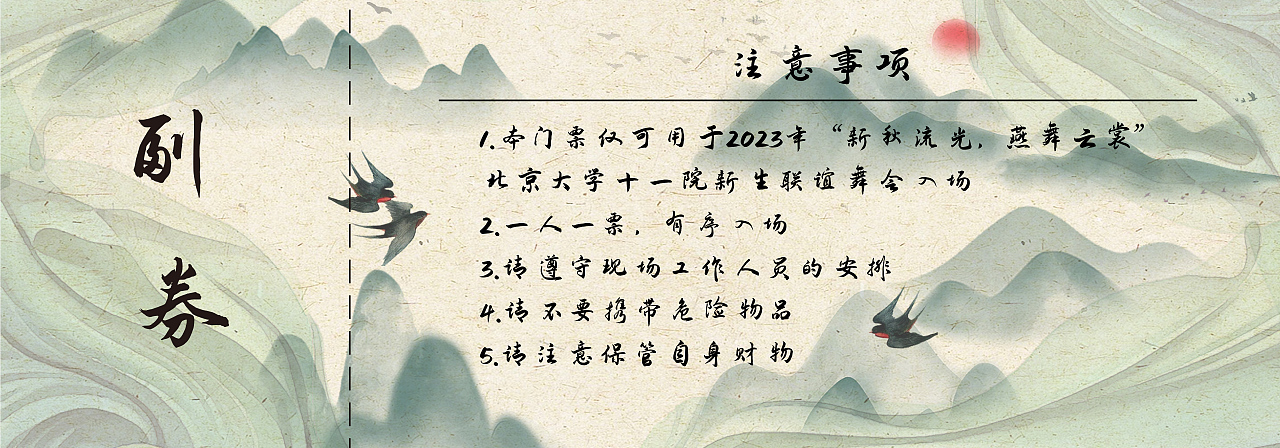 副券
注意事项
1.本门票仅可用于2023年“新秋流光，燕舞云裳”
北京大学十一院新生联谊舞会入场
2.一人一票，有序入场
3.请遵守现场工作人员的安排
4.请不要携带危险物品
5.请注意保管自身财物